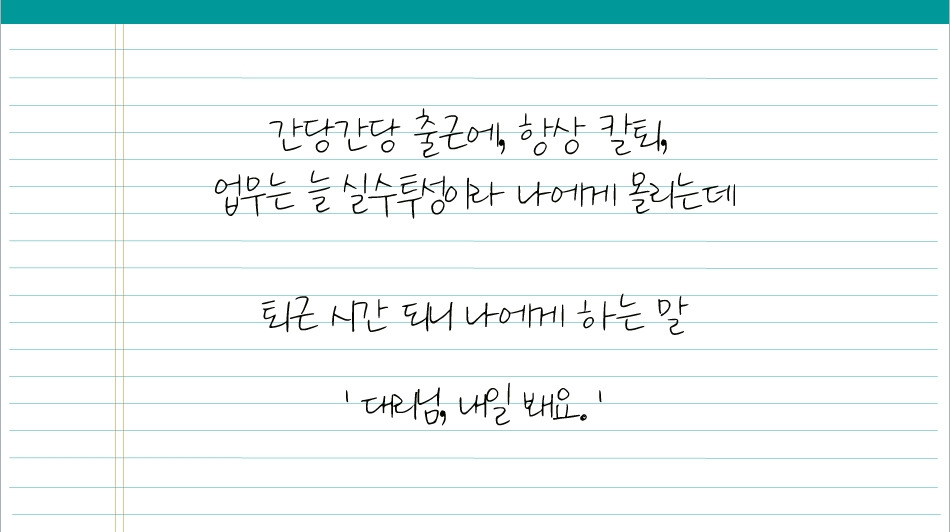 간당간당 출근에, 항상 칼퇴,
업무는 늘 실수투성이라 나에게 몰리는데
퇴근 시간 되니 나에게 하는 말
' 대리님, 내일 봬요. '